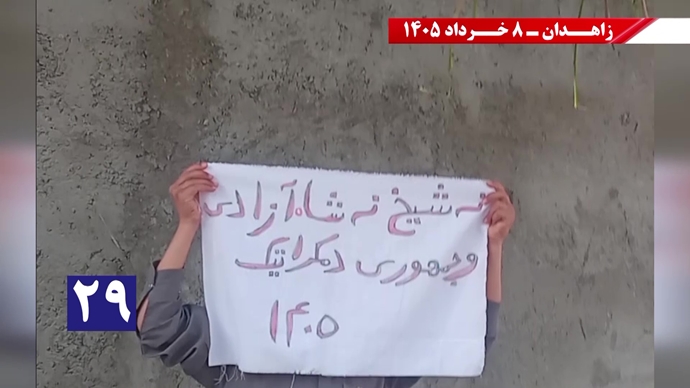 زاهـدان ـ ۸ خـرداد ۱۴۰۵
نه شیخ نه شاه آزادی
و جمهوری دمکراتیک
۱۴۰۵
۲۹